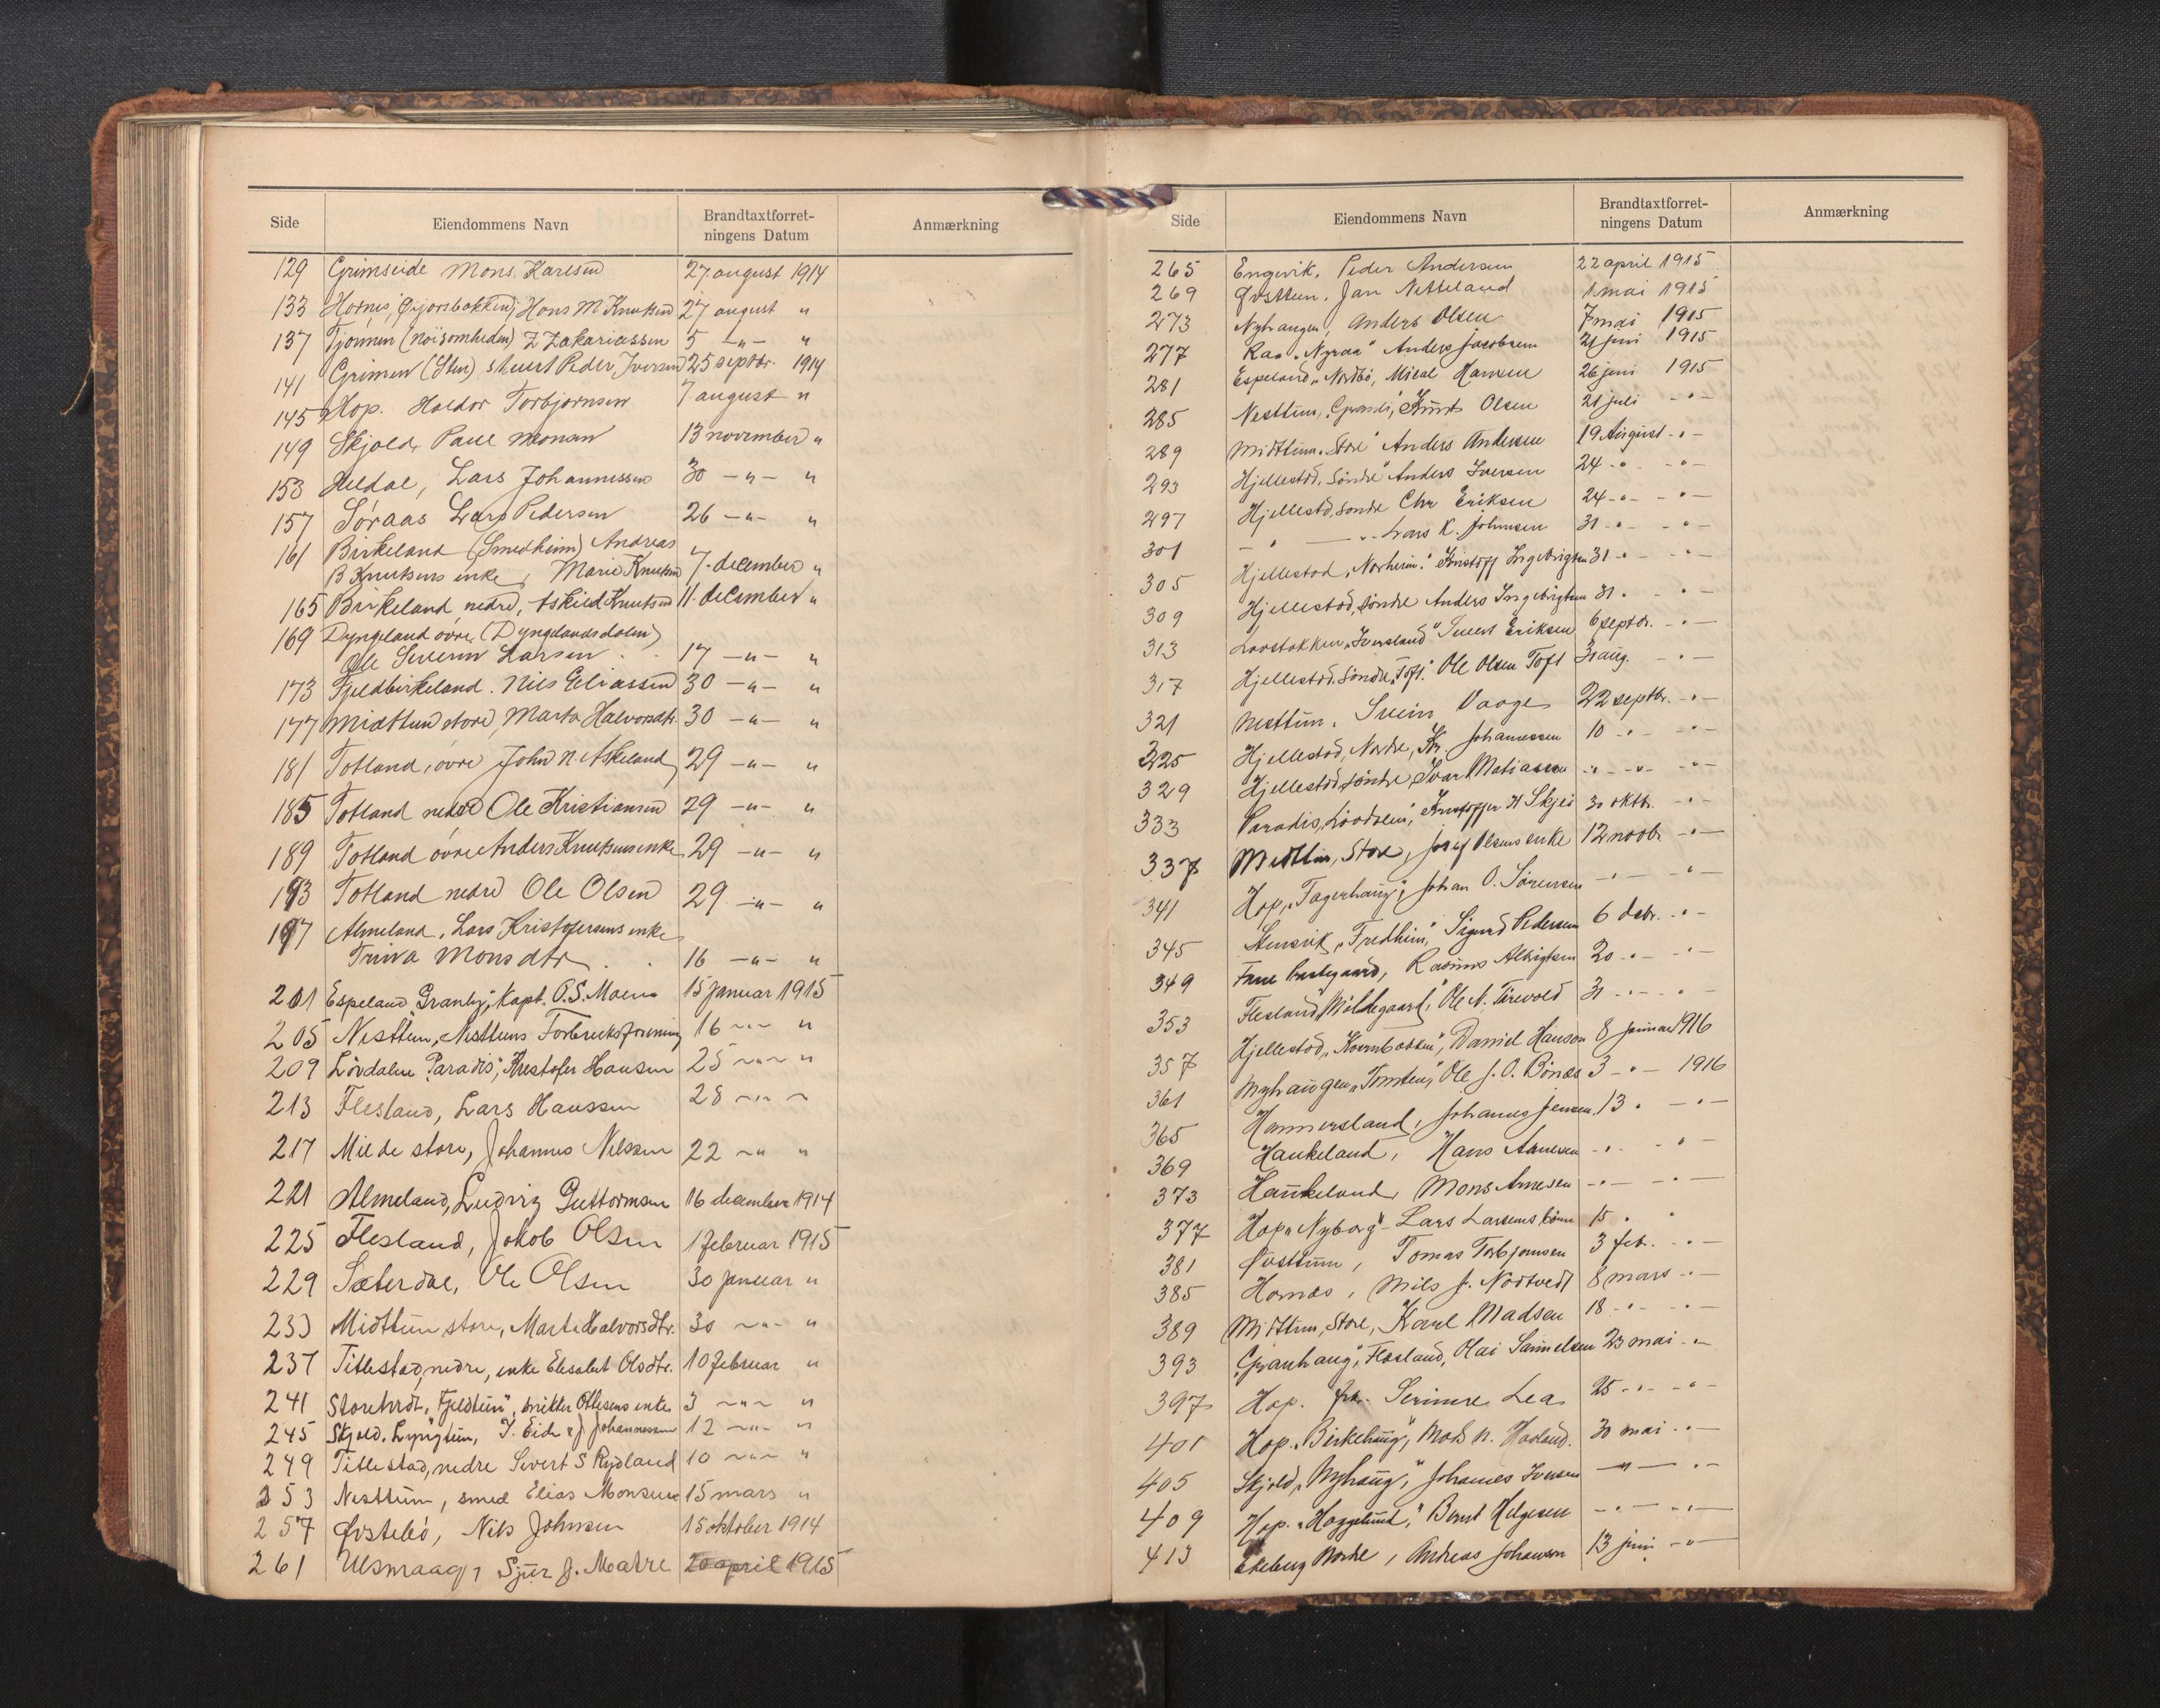 Side Eiendommens Navn Brandtaxtforret-ningens Datum Anmærkning
129 Grimseide Mons. Karlsen 27. august 1914
133 Hornes, Hans M Knutsen 27 august "
137 Tjønnen (Nöisomheden) Z Zakariassen 5 -"- "
141 Grimen (Sten) Peder Iversen 25 septbr. 1914
145 Hop. Haldor Torbjørnsen 7 august "
149 Skjold, Paul Monsen 13 november "
153 Heldal, Lars Johannessen 30 -"- "
157 Søraas Lars Pedersen 26 -"- "
161 Birkeland (Smedheim) Andreas
B Knutsens enke, Marie Knutsen 7. december "
165 Birkeland nedre, Askild Knutsen 11. december "
169 Dyngeland övre (Dyngelandsdalen)
Ole Severin Larsen 17 -"- "
173 Fjeldbirkeland. Nils Eliassen 30 -"- "
177 Midttun store, Marta Halvorsdtr. 30 -"- "
181 Totland, övre John N. Askeland 29 -"- "
185 Totland nedre Ole Kristiansen 29 -"- "
189 Totland övre Anders Knutsens enke 29 -"- "
193 Totland nedre Ole Olsen 29 -"- "
197 Almeland, Lars Kristofersens enke
Monsdtr. 16 -"- "
201 Espeland "Granly", Kapt. O.S. Moen 15 januar 1915
205 Nesttun, Nesttuns Forbruksforening 16 -"- "
209 Lövdalen "Paradis", Kristofer Hansen 25 -"- "
213 Flesland, Lars Hanssen 28 -"-
217 Milde store, Johannes Nilssen 22 -"- "
221 Almeland, Ludvig Guttormsen 16 december 1914
225 Flesland, Jakob Olsen 1 februar 1915
229 Sæterdal, Ole Olsen 30 januar "
233 Midttun store, Marta Halvorsdtr. 30 -"- "
237 Titlestad, nedre, enke Elesabet Olsdtr. 10 februar "
241 "Fjeldtun", enke 3 -"- "
245 Skjold. Lyngtun, T. Eide & J Johannessen 12 -"- "
249 Titlestad, nedre Sivert S Rydland 10 -"- "
253 Nesttun, smed Elias Monsen 15 mars "
257 Øvstebö, Nils Johnsen 15 oktober 1914
261 Ulsmaag, Sjur J. Matre 20 april 1915
Side Eiendommens Navn Brandtaxtforret-ningens Datum Anmærkning
265 Engevik, Peder Andersen 22 april 1915
269 Øvsttun, Jan Netteland 1 mai 1915
273 Nyhaugen, Anders Olsen 7 mai 1915
277 Raa "Nyraa" Anders Jacobsen 21 juni 1915
281 Espeland "Nordbö", Mikal Hansen 26 juni 1915
285 Nesttun, Knut Olsen 21 juli -"-
289 Midttun "Store" Anders Andersen 19 August -"-
293 Hjellestad, Söndre Anders Iversen 24 -"- -"-
297 Hjellestad, söndre Chr Eriksen 24 -"- -"-
301 - " - Lars K. Johnsen 31 -"- -"-
305 Hjellestad, "Norheim" Kristoff Ingebrigtsen 31 -"- -"-
309 Hjellestad, söndre Anders Ingebrigtsen 31 " -"-
313 "Iversland" Sivert Eriksen 6 septbr. -"-
317 Hjellestad. söndre "Toft" Ole Olsen Toft 31 aug. -"-
321 Nesttun. Svein Vaage 22 septbr. -"-
325 Hjellestad, Nordre, Kr. Johanessen 10 -"- -"-
329 Hjellestad, söndre, Ivar Matiassen -"- -"- -"-
333 Paradis, Kristoffer H Skjei 30 oktbr. -"-
337 Midttun, Store, Josef Olsens enke 12 novbr. -"-
341 Hop, "Fagerhaug", Johan O. Sörensen -"- -"-
345 Stensvik, "Fredheim", Sigurd Pedersen 6 debr. -"-
349 Fane Prestegaard, Rasmus Albrigtsen 20 -"- -"-
353 Flesland, "Mildegaard", Ole N. 31 -"- -"-
357 Hjellestad, "Kvernbakken", Daniel Hanson 8 januar 1916
361 Nyhaugen, "Tomten", Ole J. O. Bönes 3 -"- 1916
365 Hammersland, Johannes Jensen 13 " -"-
369 Haukeland, Hans Arnesen -"- -"-
373 Haukeland, Mons Arnesen -"- -"-
377 Hop "Nyborg" - Lars Larsens 15 " "
381 Øvsttun, Tomas Torbjørnsen 3 feb. -"-
385 Hornæs, Nils J. Nödtvedt 8 mars -"-
389 Midttun, Store, Karl Madsen 18 -"- -"-
393 "Granhaug", Flesland, Olai Samuelsen 23 mai -"-
397 Hop. Lea 25 -"- -"-
401 Hop. "Birkehaug", Mads N. 30 mai -"-
405 Skjold, "Nyhaug", Johannes Iversen -"- -"-
409 Hop. Bernt Helgesen -"- -"-
413 Ekeberg Nordre, Andreas Johanson 13 juni -"-